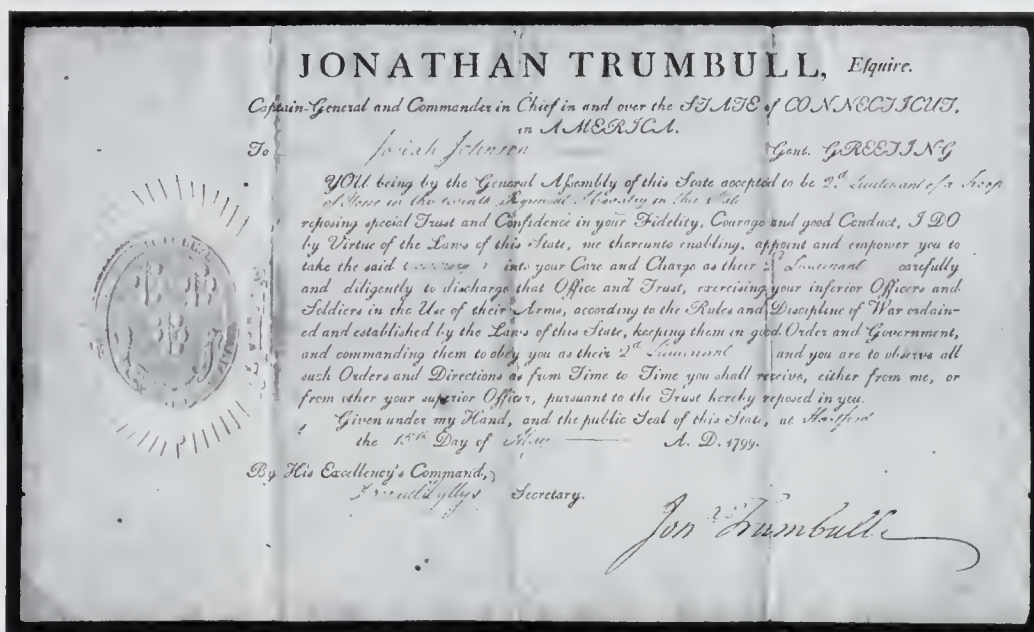 JONATHAN TRUMBULL, Esquire.
Captain-General and Commander in Chief in and over the STATE of CONNECTICUT,
in AMERICA.
To Josiah Johnson Gent. GREETING
YOU being by the General Assembly of this State accepted to be 2d Lieutenant of a Troop
of in the Regiment of Cavalry in this State
reposing special Trust and Confidence in your Fidelity, Courage and good Conduct, I DO
by Virtue of the Laws of this State, me thereunto enabling, appoint and empower you to
take the said into your Care and Charge as their 2d Lieutenant carefully
and diligently to discharge that Office and Trust, exercising your inferior Officers and
Soldiers in the Use of their Arms, according to the Rules and Discipline of War ordain-
ed and established by the Laws of this State, keeping them in good Order and Government,
and commanding them to obey you as their 2d Lieutenant and you are to observe all
such Orders and Directions as from Time to Time you shall receive, either from me, or
from other your superior Officer, pursuant to the Trust hereby reposed in you.
Given under my Hand, and the public Seal of this State, at Hartford
the 15th Day of A. D. 1799.
By His Excellency's Command,
Wyllys Secretary.
Jonth Trumbull